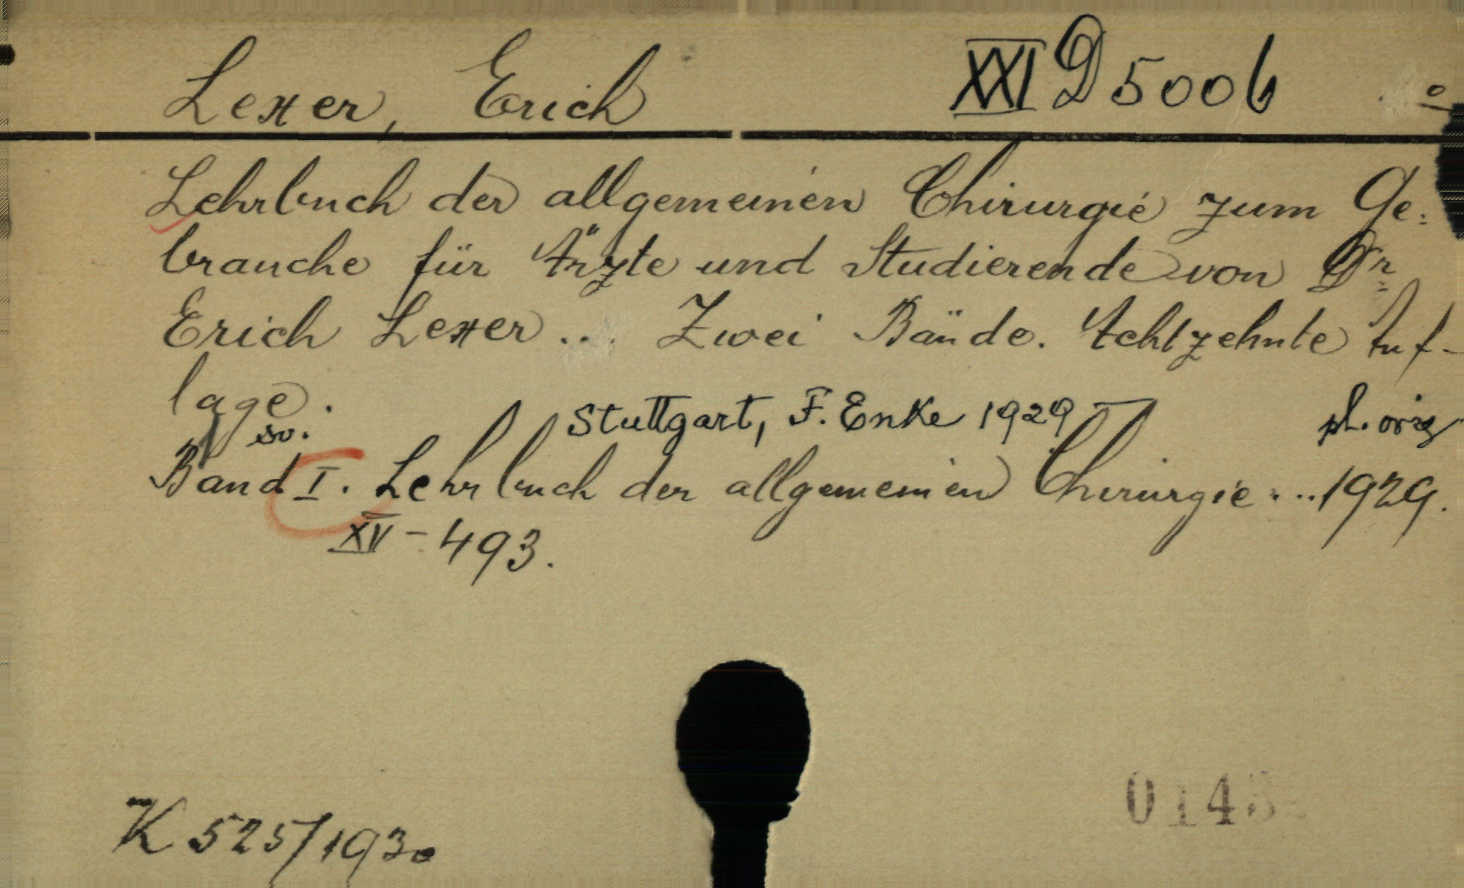 Lexer, Erich XXI D 5006
Lehrbuch der allgemeinen Chirurgie zum Ge-
brauche für Ärzte und Studierende von Dr
Erich Lexer... Zwei Bände. Achtzehnte Auf-
lage.
Stuttgart, F. Enke 1929 –
sv.
Band I. Lehrbuch der allgemeinen Chirurgie...1929.
XV – 493.
K 525/1930